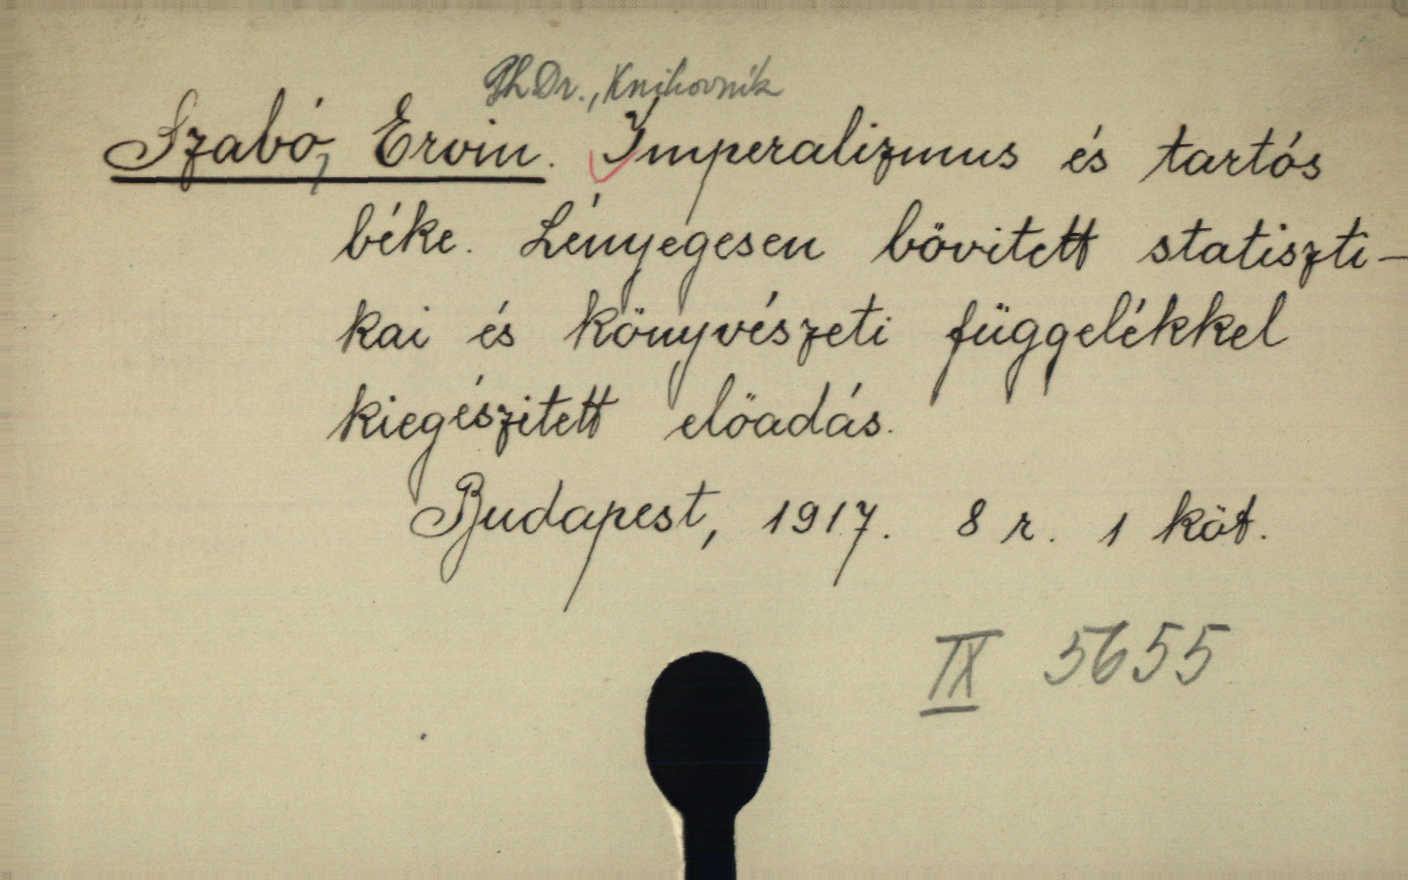 PhDr., Knihovník
Szabó, Ervin. Imperalizmus és tartós
béke. Lényegesen bövitett statiszti-
kai és könyvészeti függelékkel
kiegészitett elöadás.
Budapest, 1917. 8 r. 1 köt.
IX 5655